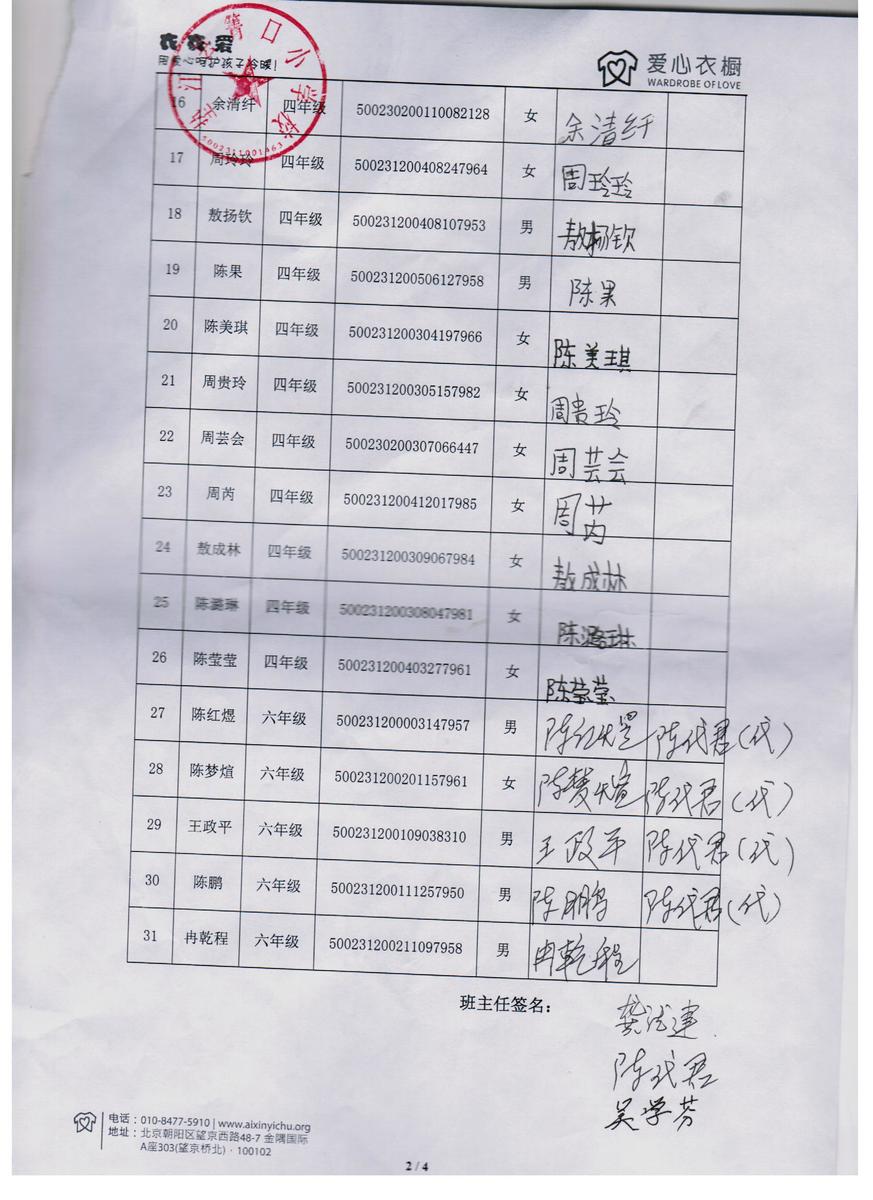 衣衣爱
用爱心呵护孩子冷暖!
爱心衣橱
WARDROBE OF LOVE
16 余清纤 四年级 500230200110082128 女 余清纤
17 周玲玲 四年级 500231200408247964 女 周玲玲
18 敖扬钦 四年级 500231200408107953 男 敖扬钦
19 陈果 四年级 500231200506127958 男 陈果
20 陈美琪 四年级 500231200304197966 女 陈美琪
21 周贵玲 四年级 500231200305157982 女 周贵玲
22 周芸会 四年级 500230200307066447 女 周芸会
23 周芮 四年级 500231200412017985 女 周芮
24 敖成林 四年级 500231200309067984 女 敖成林
25 陈潞琳 四年级 500231200308047981 女 陈潞琳
26 陈莹莹 四年级 500231200403277961 女 陈莹莹
27 陈红煜 六年级 500231200003147957 男 陈红煜 陈代君(代)
28 陈梦煊 六年级 500231200201157961 女 陈梦煊 陈代君(代)
29 王政平 六年级 500231200109038310 男 王政平 陈代君(代)
30 陈鹏 六年级 500231200111257950 男 陈鹏 陈代君(代)
31 冉乾程 六年级 500231200211097958 男 冉乾程
班主任签名:
陈代君
吴学芬
电话:010-8477-5910 | www.aixinyichu.org
地址:北京朝阳区望京西路48-7 金隅国际
A座303(望京桥北)·100102
2 / 4